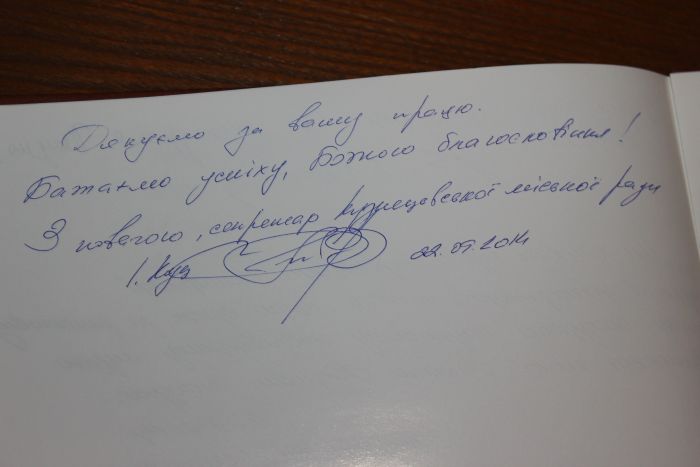 Дякуємо за вашу працю.
Бажаємо успіху, Божого благословіння!
З повагою, секретар Кузнецовської міської ради
І. Куз 22.05.2014